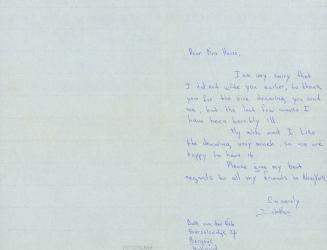 Dear Miss Racz,
I am very sorry that
I did not write you earlier, to thank
you for the nice drawing, you send
me, but the last few weeks I
have been terribly ill.
My wife and I like
the drawing very much, so we are
happy to have it.
Please give my best
regards to all my friends in New York
Sincerely
Bob van der
Bergeijk
Holland